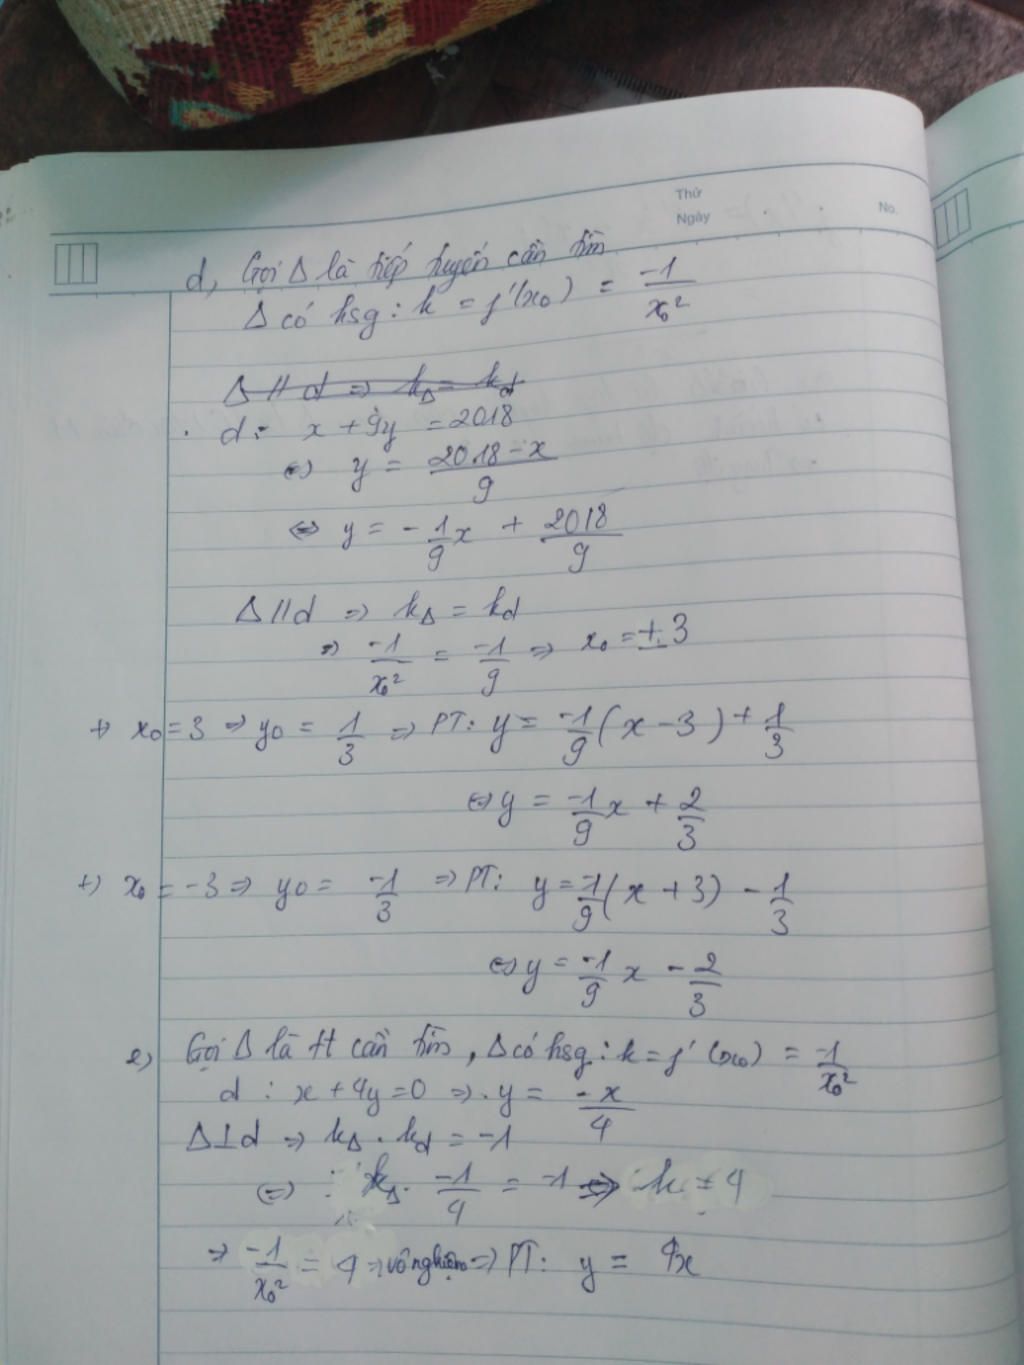 Thứ
Ngày
No.
d, Gọi Δ là tiếp tuyến cần tìm
Δ có hsg : k = f'(x₀) = -1/x₀²
Δ // d => k_Δ = k_d
d: x + 9y = 2018
<=> y = (2018 - x)/9
<=> y = -1/9 x + 2018/9
Δ // d => k_Δ = k_d
=> -1/x₀² = -1/9 => x₀ = ±3
+) x₀ = 3 => y₀ = 1/3 => PT: y = -1/9 (x - 3) + 1/3
<=> y = -1/9 x + 2/3
+) x₀ = -3 => y₀ = -1/3 => PT: y = -1/9 (x + 3) - 1/3
<=> y = -1/9 x - 2/3
e) Gọi Δ là tt cần tìm, Δ có hsg : k = f'(x₀) = -1/x₀²
d : x + 4y = 0 => y = -x/4
Δ ⊥ d => k_Δ . k_d = -1
<=> k_Δ . -1/4 = -1 <=> k = 4
=> -1/x₀² = 4 => vô nghiệm => PT: y = 4x